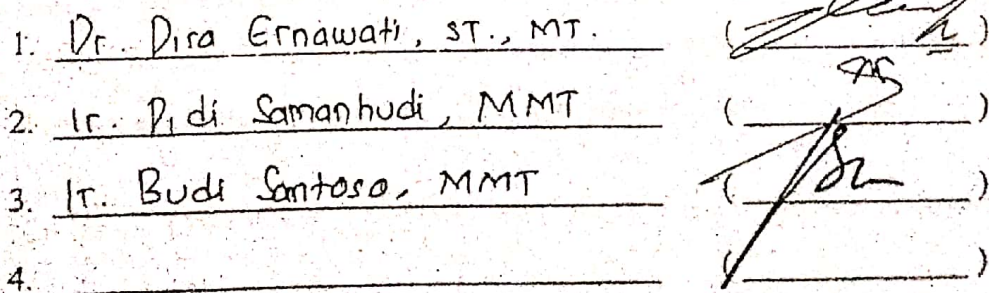 1. Dr. Dira Ernawati, ST., MT. ( )
2. Ir. Didi Samanhudi, MMT ( )
3. Ir. Budi Santoso, MMT ( )
4. ( )